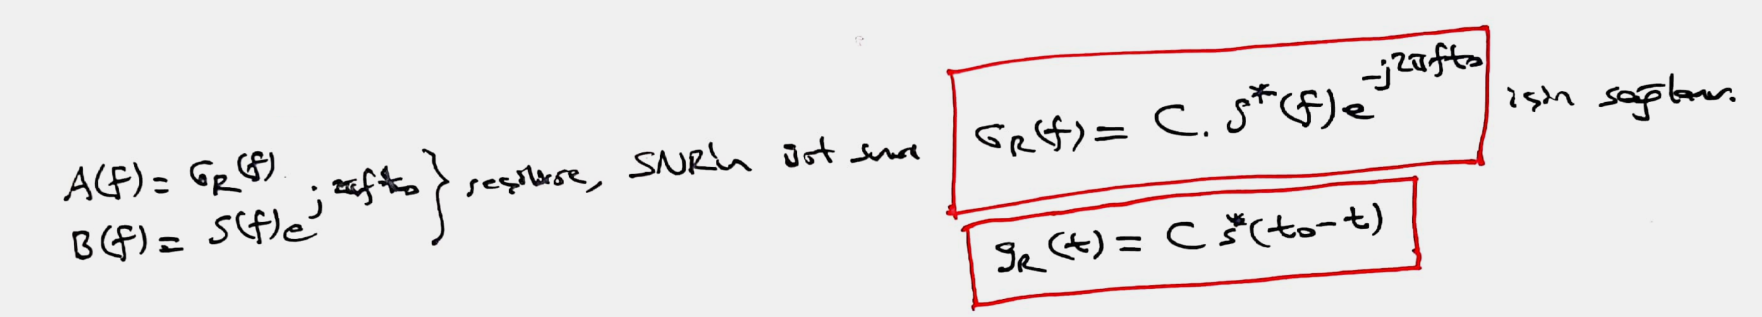 A(f) = G_R(f)
B(f) = S(f)e^{j2πft_0} } seçilirse, SNR'ın üst sınırı G_R(f) = C. S^*(f)e^{-j2πft_0} için sağlanır.
g_R(t) = C s^*(t_0-t)